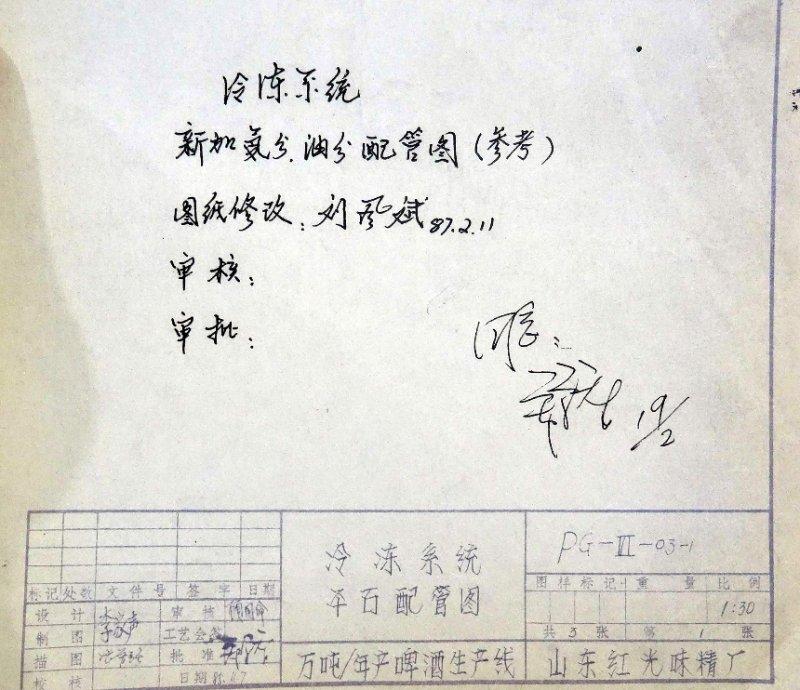 冷冻系统
新加氨分、油分配管图(参考)
图纸修改:刘风斌 87.2.11
审核:
审批:
19/2
标记 处数 文件号 签字 日期
设计 审核
制图 工艺会签
描图 批准
校核 日期
冷冻系统
平面配管图
万吨/年产啤酒生产线
PG-Ⅲ-03-1
图样标记 重量 比例
1:30
共3张 第1张
山东红光味精厂